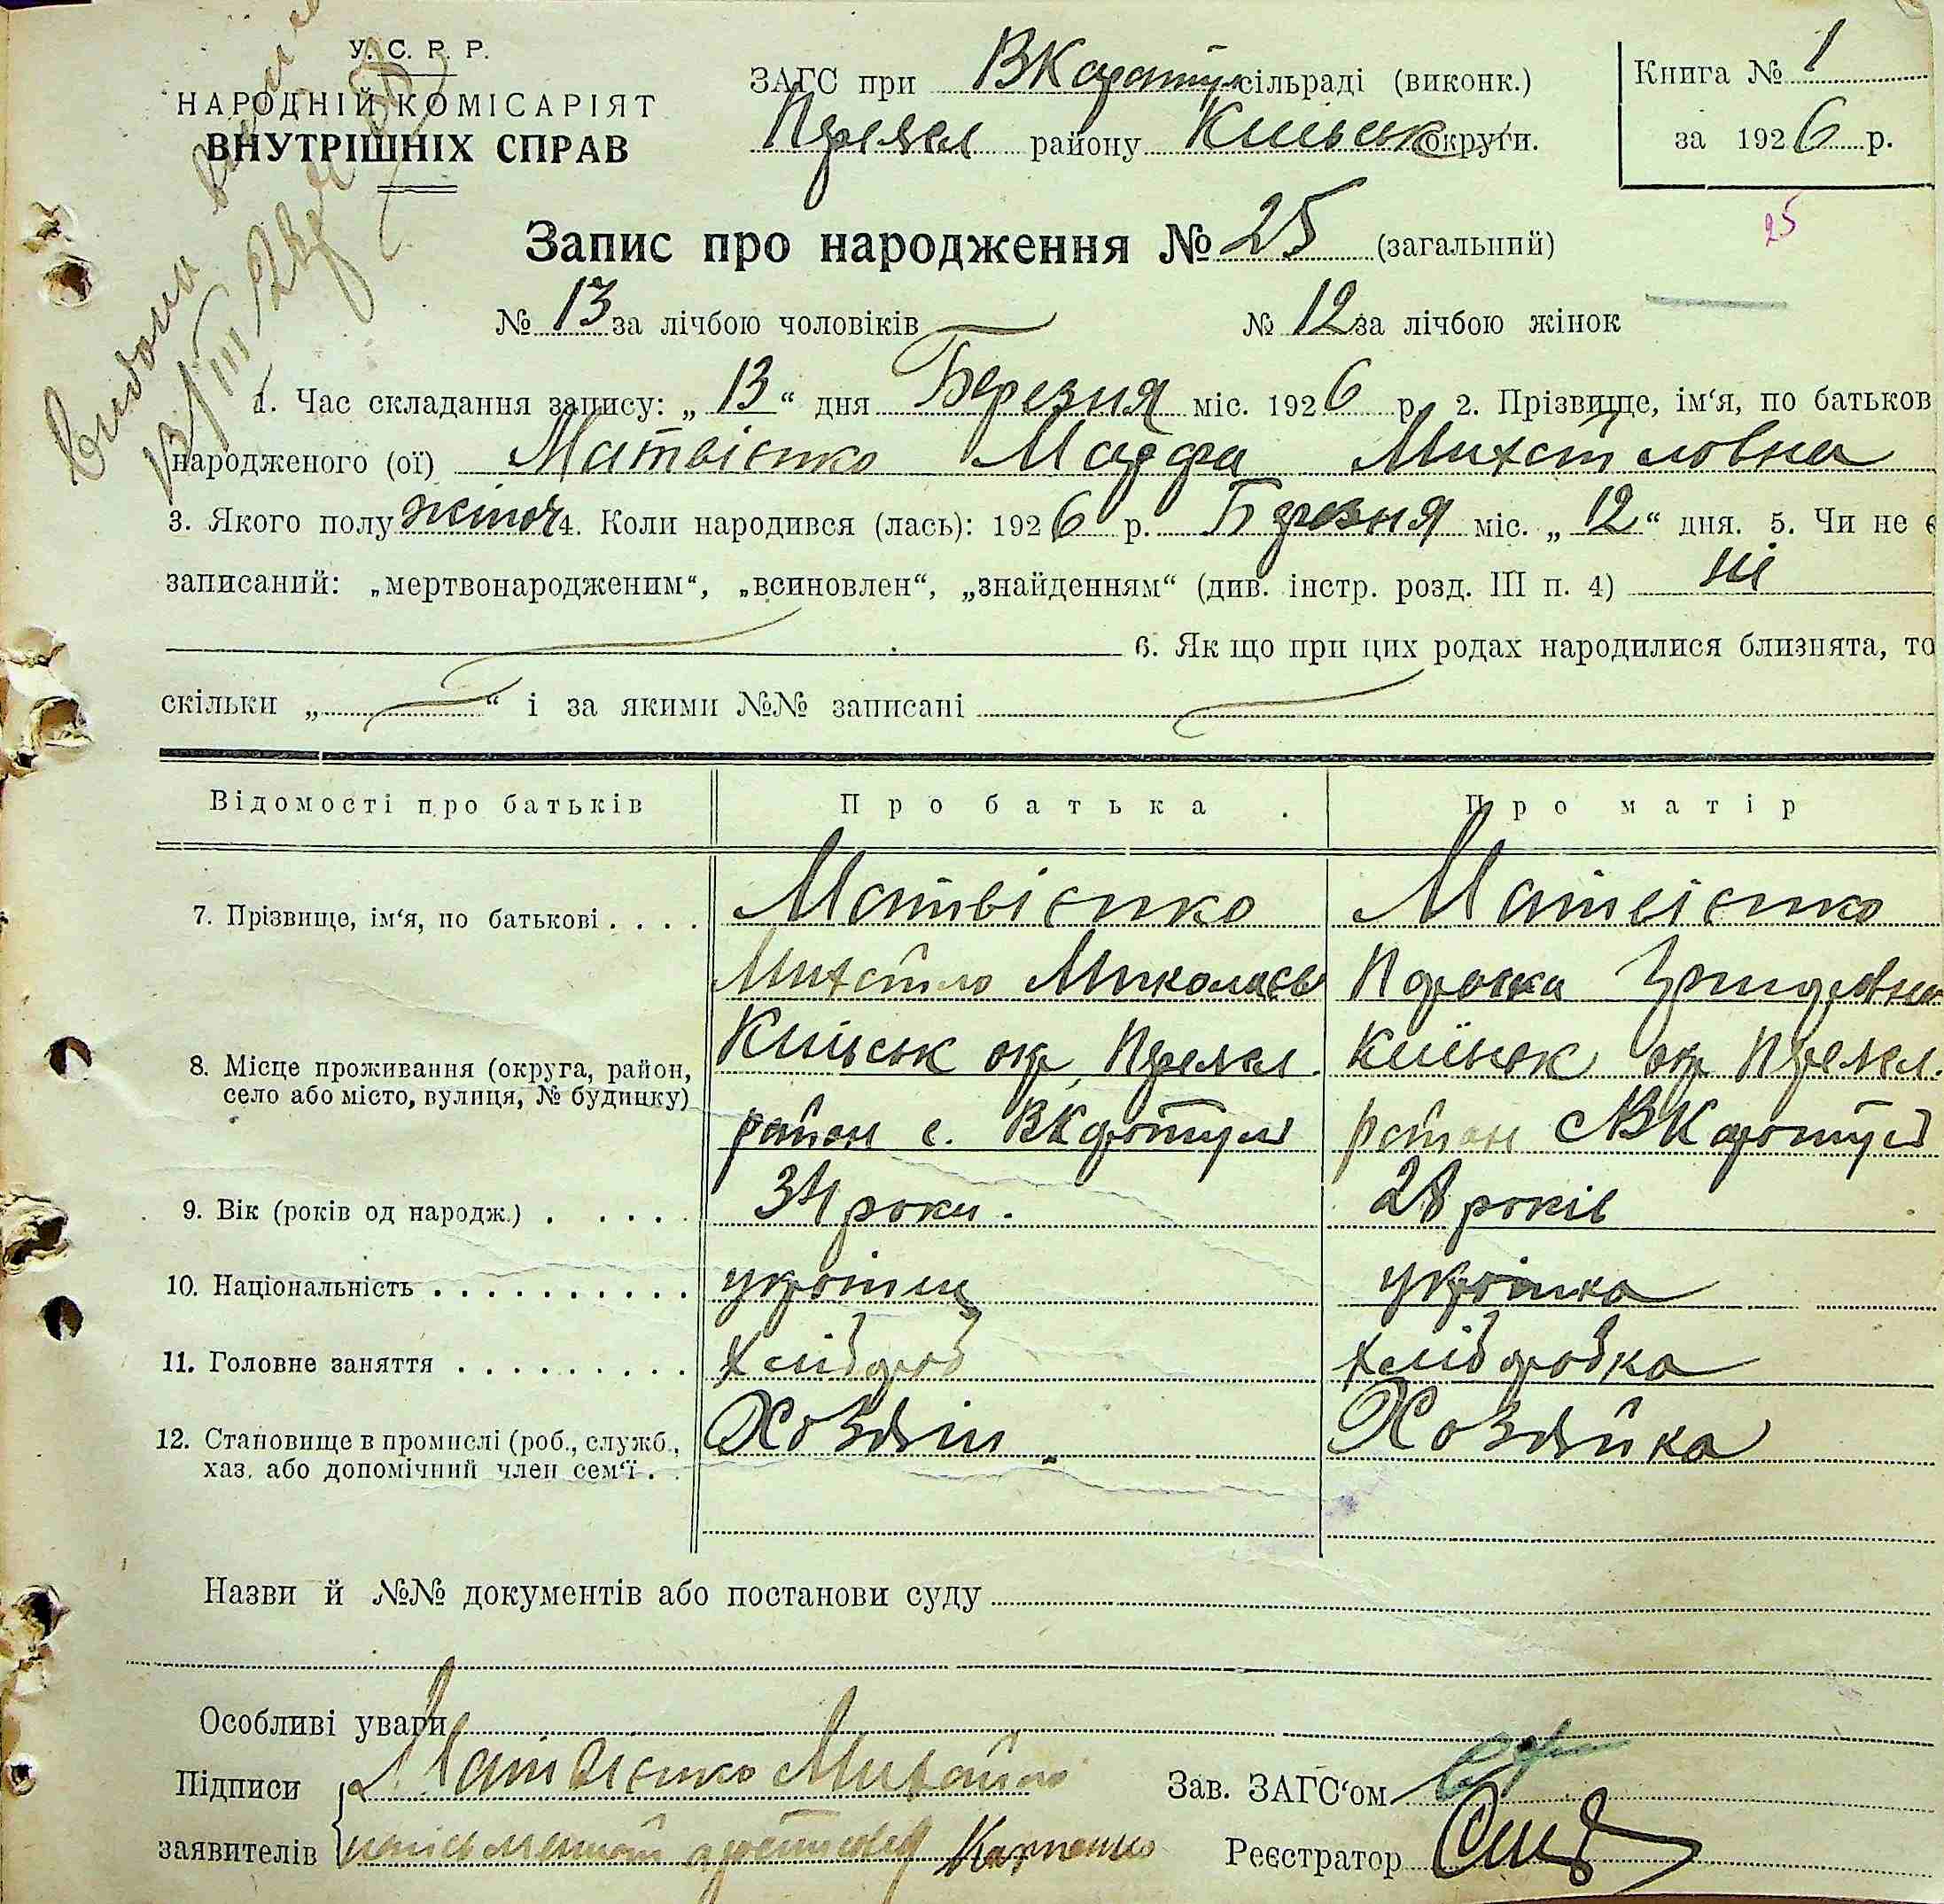 У. С. Р. Р.
НАРОДНІЙ КОМІСАРІЯТ
ВНУТРІШНІХ СПРАВ
ЗАГС при ВКаратул сільраді (виконк.)
Переясл району Київськ округи.
Книга № 1
за 1926 р.
25
Запис про народження № 25 (загальний)
№ 13 за лічбою чоловіків № 12 за лічбою жінок
1. Час складання запису: „ 13 “ дня Березня міс. 1926 р. 2. Прізвище, ім‘я, по батьков
народженого (ої) Матвієнко Марфа Михайловна
3. Якого полу жіноч 4. Коли народився (лась): 1926 р. Березня міс. „ 12 “ дня. 5. Чи не є
записаний: „мертвонародженим“, „всиновлен“, „знайденням“ (див. інстр. розд. III п. 4) ні
6. Як що при цих родах народилися близнята, то
скільки „ “ і за якими №№ записані
Відомості про батьків Про батька Про матір
7. Прізвище, ім‘я, по батькові Матвієнко Матвієнко
Михайло Миколаєв Параска
8. Місце проживання (округа, район, Київськ окр Переясл. Київськ окр Переясл.
село або місто, вулиця, № будинку) район с. ВКаратул район с ВКаратул
9. Вік (років од народж.) 34 роки. 28 років
10. Національність українц українка
11. Головне заняття хлібороб хліборобка
12. Становище в промислі (роб., служб., Хозяїн Хозяйка
хаз. або допомічний член сем‘ї .
Назви й №№ документів або постанови суду
Особливі уваги
Підписи Матвієнко Михайло
заявителів Карпенко
Зав. ЗАГС‘ом
Реєстратор